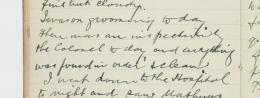 first but cloudy.
I was on grooming to day
There was an inspection by
the Colonel to day and everything
was found in order & clean.
I went down to the Hospital
to night and saw Mathews